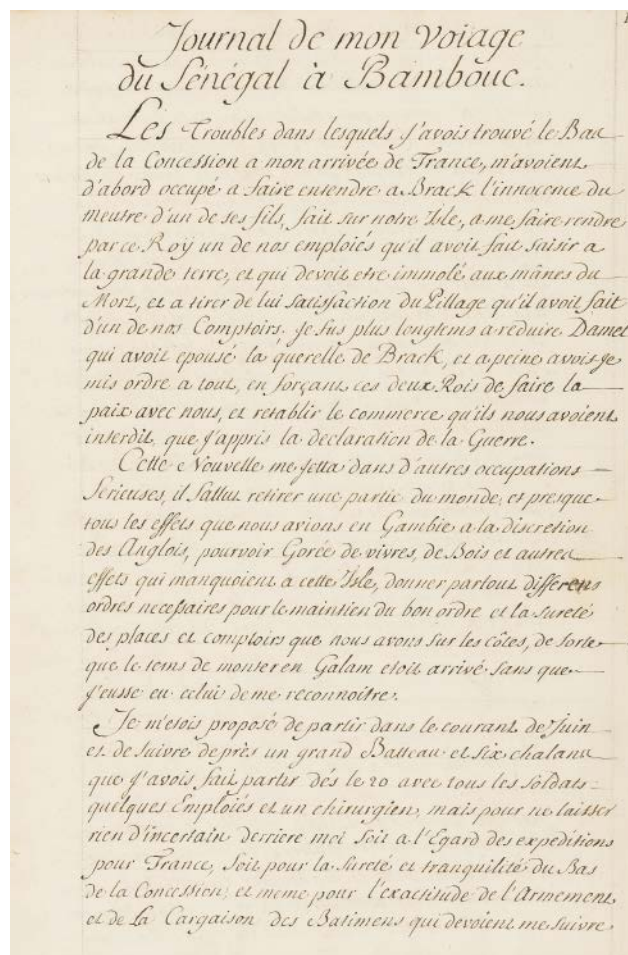 Journal de mon Voiage
du Sénégal à Bambouc.
Les Troubles dans lesquels j'avois trouvé le Bas
de la Concession a mon arrivée de France, m'avoient
d'abord occupé a faire entendre a Brack l'innocence du
meutre d'un de ses fils, fait sur notre Isle, a me faire rendre
par ce Roÿ un de nos emploiés qu'il avoit fait saisir a
la grande terre, et qui devoit etre immolé aux mânes du
Mort, et a tirer de lui satisfaction du Pillage qu'il avoit fait
d'un de nos Comptoirs. Je fus plus longtems a réduire Damel
qui avoit epousé la querelle de Brack, et a peine avois-je
mis ordre a tout, en forçant ces deux Rois de faire la
paix avec nous, et retablir le commerce qu'ils nous avoient
interdit, que j'appris la declaration de la Guerre.
Cette Nouvelle me jetta dans d'autres occupations
serieuses, il fallut retirer une partie du monde, et presque
tous les effets que nous avions en Gambie a la discretion
des Anglois, pourvoir Gorée de vivres, de Bois et autres
effets qui manquoient a cette Isle, donner partout differens
ordres necessaires pour le maintien du bon ordre et la sureté
des places et comptoirs que nous avons sur les côtes, de sorte
que le tems de monter en Galam etoit arrivé sans que
j'eusse eu celui de me reconnoitre.
Je m'etois proposé de partir dans le courant de Juin
et de suivre de près un grand Batteau et six chalans
que j'avois fait partir dés le 20 avec tous les soldats
quelques Emploiés et un chirurgien, mais pour ne laisser
rien d'incertain derriere moi soit a l'Egard des expeditions
pour France, soit pour la sureté et tranquilité du Bas
de la Concession, et meme pour l'exactitude de l'Armement
et de la Cargaison des Batimens qui devoient me suivre